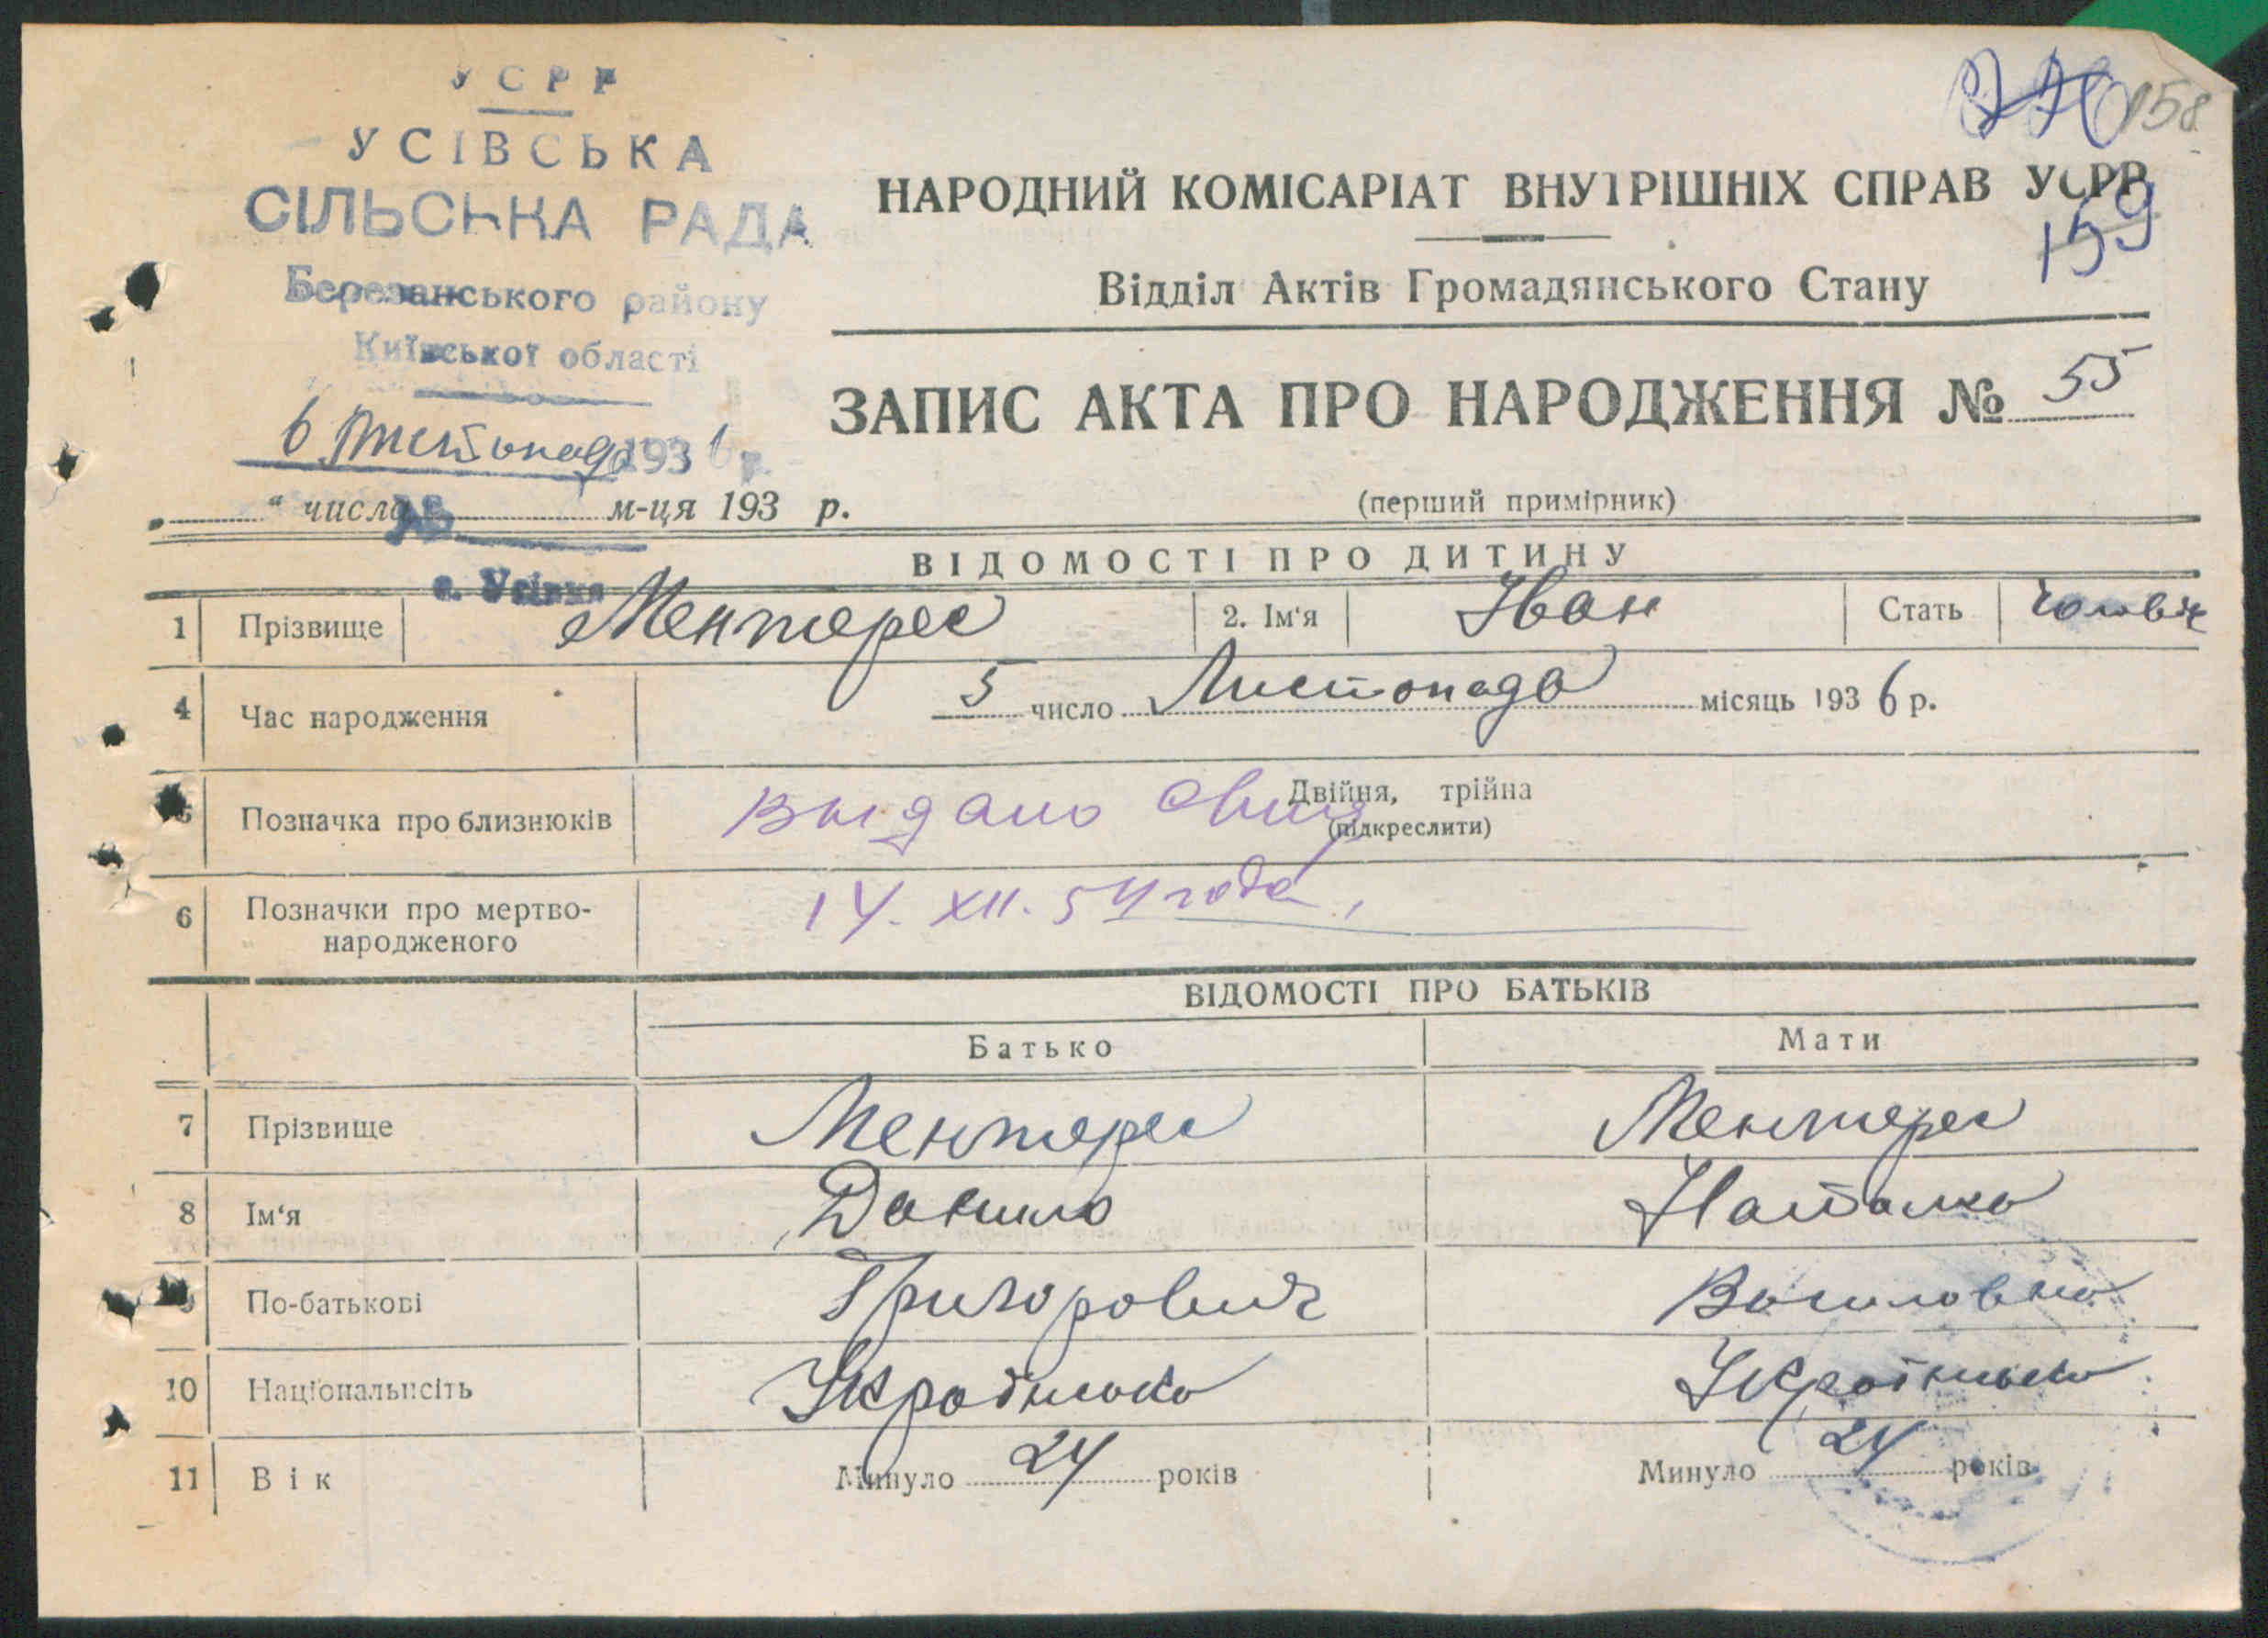 УСРР
УСІВСЬКА
СІЛЬСЬКА РАДА
Березанського району
Київської області
6 Листопада 1936 р.
№
с. Усівка
158
159
НАРОДНИЙ КОМІСАРІАТ ВНУТРІШНІХ СПРАВ УСРР
Відділ Актів Громадянського Стану
ЗАПИС АКТА ПРО НАРОДЖЕННЯ № 55
„ “ числа м-ця 193 р.
(перший примірник)
ВІДОМОСТІ ПРО ДИТИНУ
1 Прізвище Ментерес 2. Ім‘я Іван Стать чоловіч
4 Час народження 5 число Листопада місяць 1936 р.
5 Позначка про близнюків Двійня, трійна
(підкреслити)
Выдано свид
6 Позначки про мертво-
народженого
14. XII. 54 года
ВІДОМОСТІ ПРО БАТЬКІВ
Батько Мати
7 Прізвище Ментерес Ментерес
8 Ім‘я Данило Наталка
9 По-батькові Григорович Василовна
10 Національність Українська Українська
11 Вік Минуло 24 років Минуло 24 років